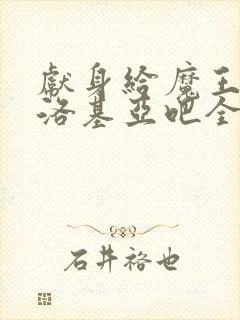 獻身給魔王
洛基亞吧全
石井裕也